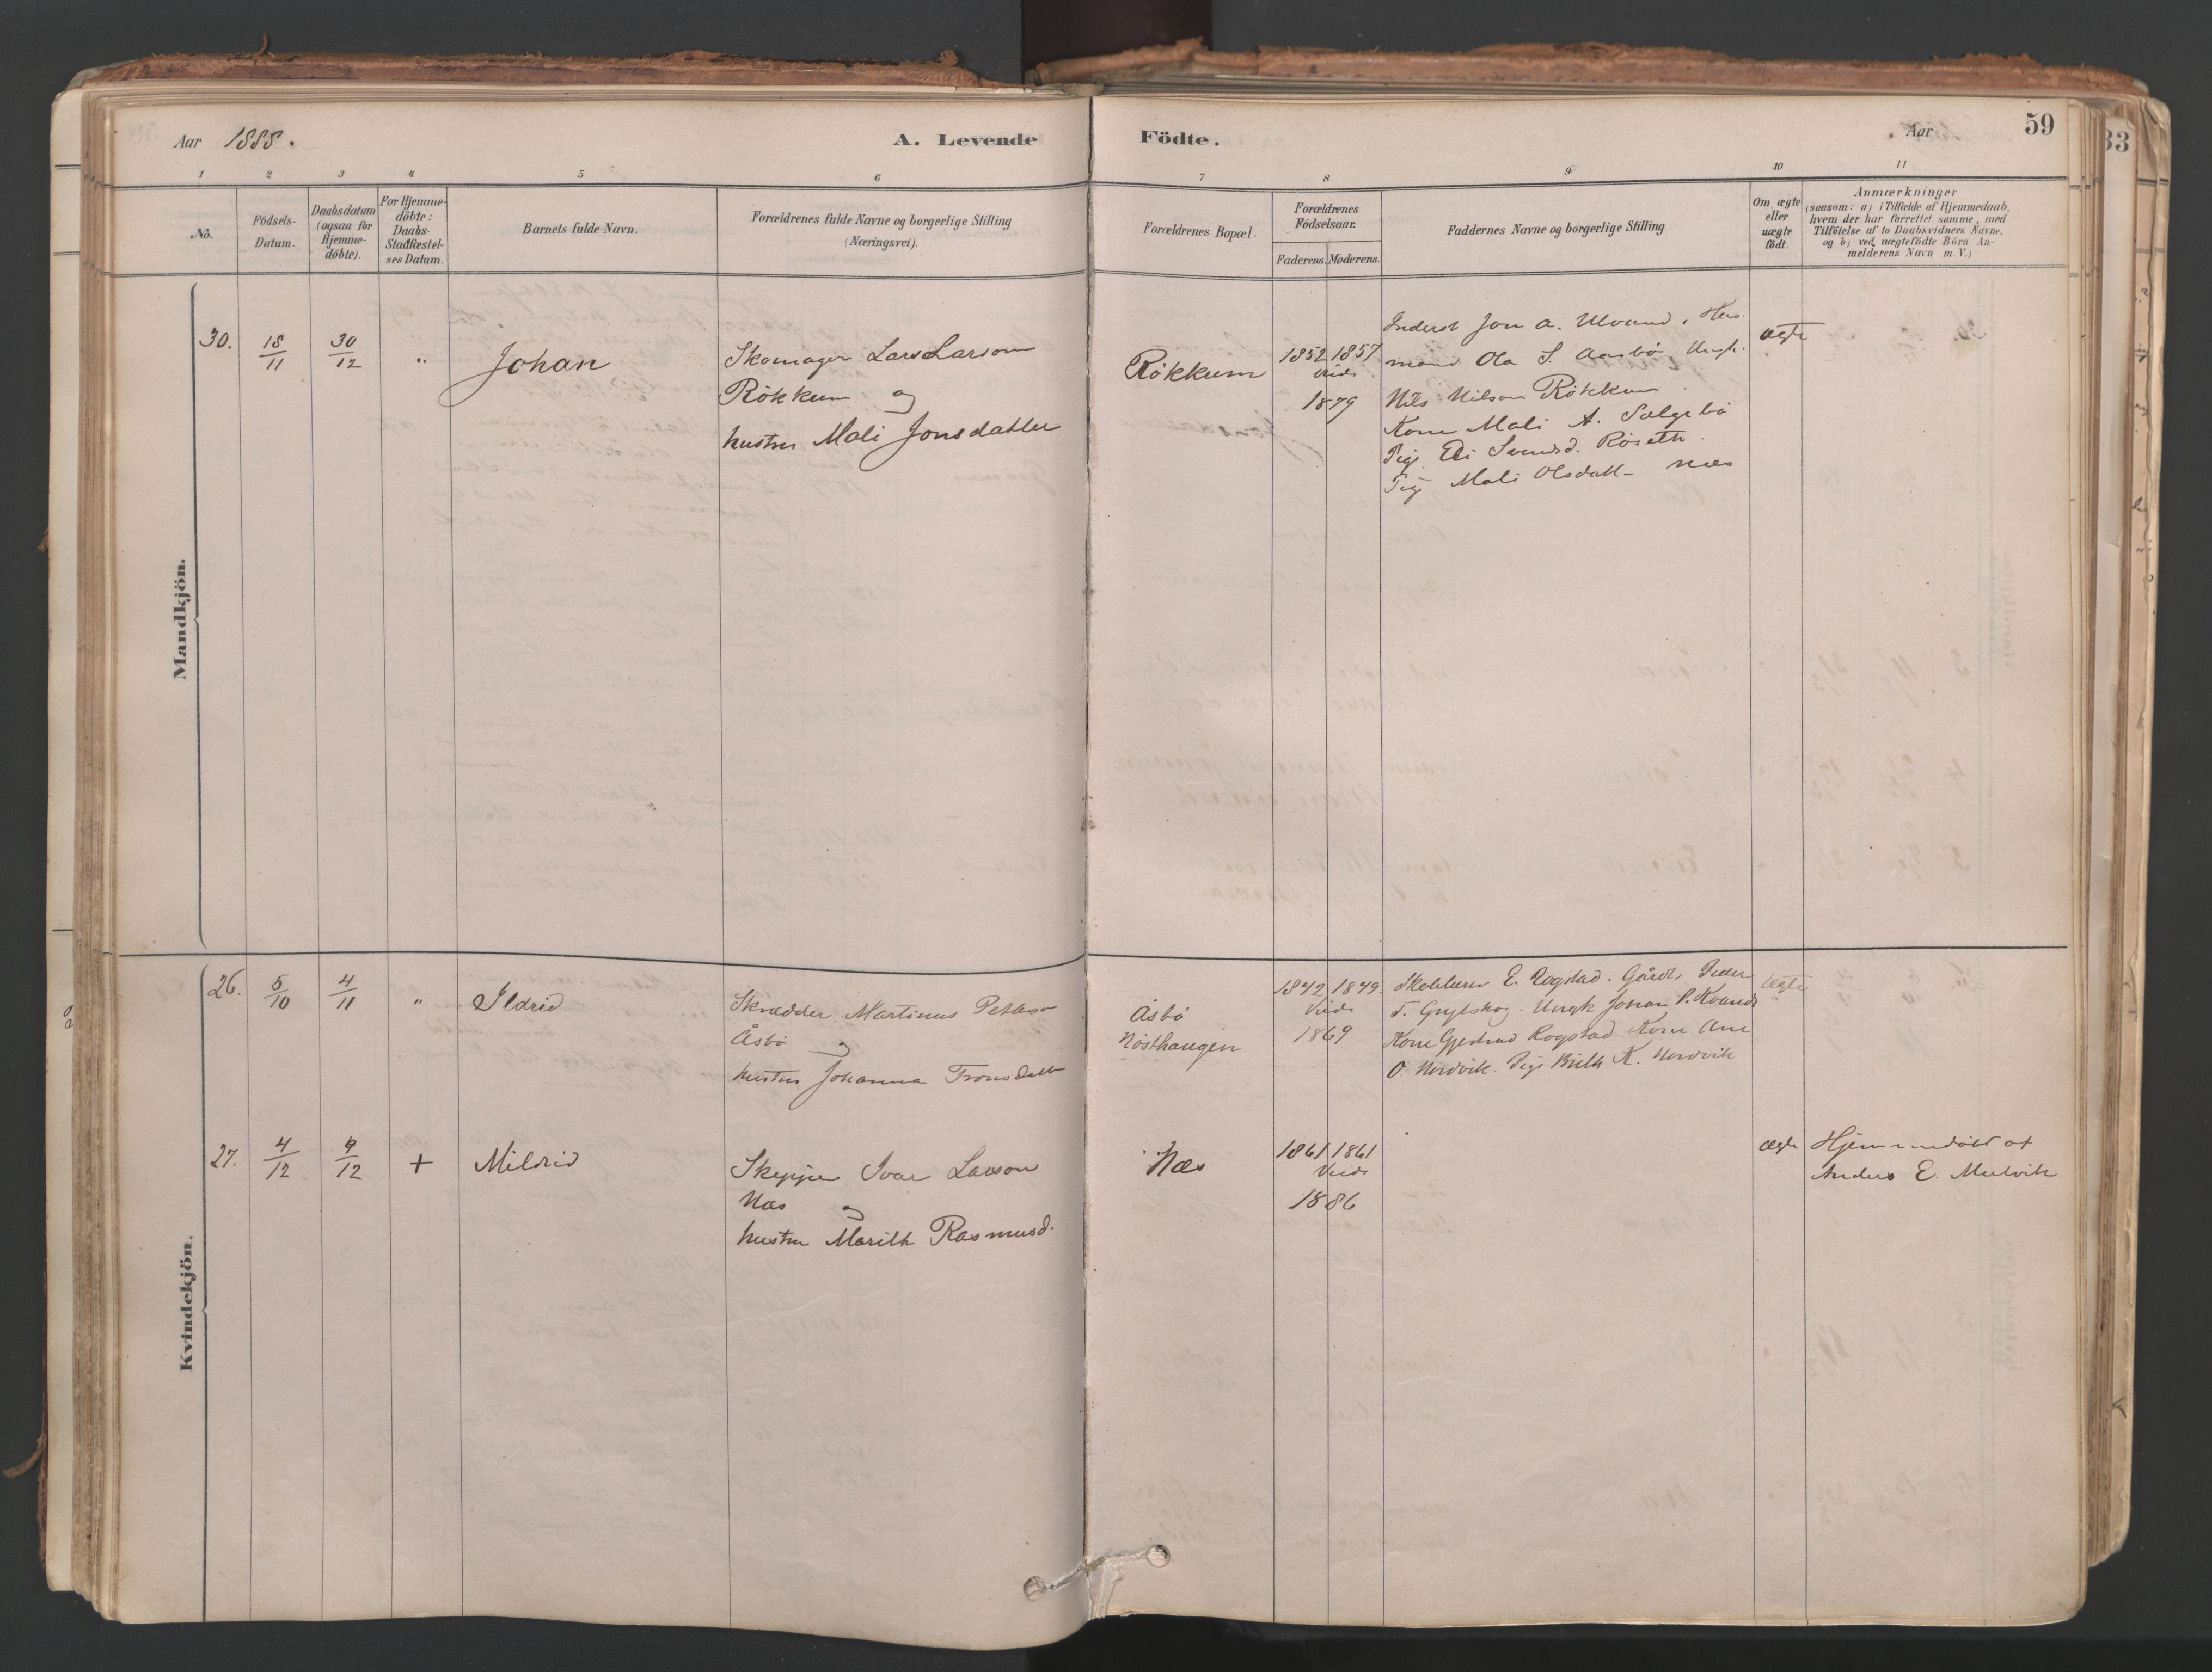 Aar 1888.
A. Levende Födte.
Aar
59
33
1 2 3 4 5 6 7 8 9 10 11
No.
Födsels-
Datum.
Daabsdatum
(ogsaa for
Hjemme-
döbte).
For Hjemme-
döbte:
Daabs-
Stadfæstel-
ses Datum.
Barnets fulde Navn.
Forældrenes fulde Navne og borgerlige Stilling
(Næringsvei).
Forældrenes Bopæl.
Forældrenes
Födselsaar.
Faderens. Moderens.
Faddernes Navne og borgerlige Stilling
Om ægte
eller
uægte
födt.
Anmærkninger
(saasom: a) i Tilfælde af Hjemmedaab,
hvem der har forrettet samme, med
Tilföielse af to Daabsvidners Navne.
og b) ved uægtefödte Börn An-
melderens Navn m. V.)
Mandkjön.
30.
18/11
30/12
"
Johan
Skomager Lars Larson
Rökkum og
hustru Mali Jonsdatter
Rökkum
1852 1857
viede
1879
Inderst Jon A. Ulvund, Hus-
mand Ola S. Aasbö, Ungk.
Nils Nilson Rökkum
Kone Mali A. Sælgebö
Pige Eli Svendsd. Röseth.
Pige Mali Olsdatt- Næs
ægte
Kvindekjön.
26.
5/10
4/11
"
Ildrid
Skrædder Martinus Petterson
Åsbö og
hustru Johanna Tronsdatt
Åsbö
Nösthaugen
1842 1849.
Viede
1869
Skolelærer E. Rogstad. Gårdb. Peder
T. Grytskog. Ungk Johan P. Kvande
Kone Gjertrud Rogstad Kone Ane
O. Nordvik. Pige Brith K. Nordvik
ægte
27.
4/12
9/12
+
Mildrid
Skipper Ivar Larson
Næs og
hustru Marith Rasmusd.
Næs
1861 1861
Viede
1886
ægte
Hjemmedöbt af
Anders E. Mulvik